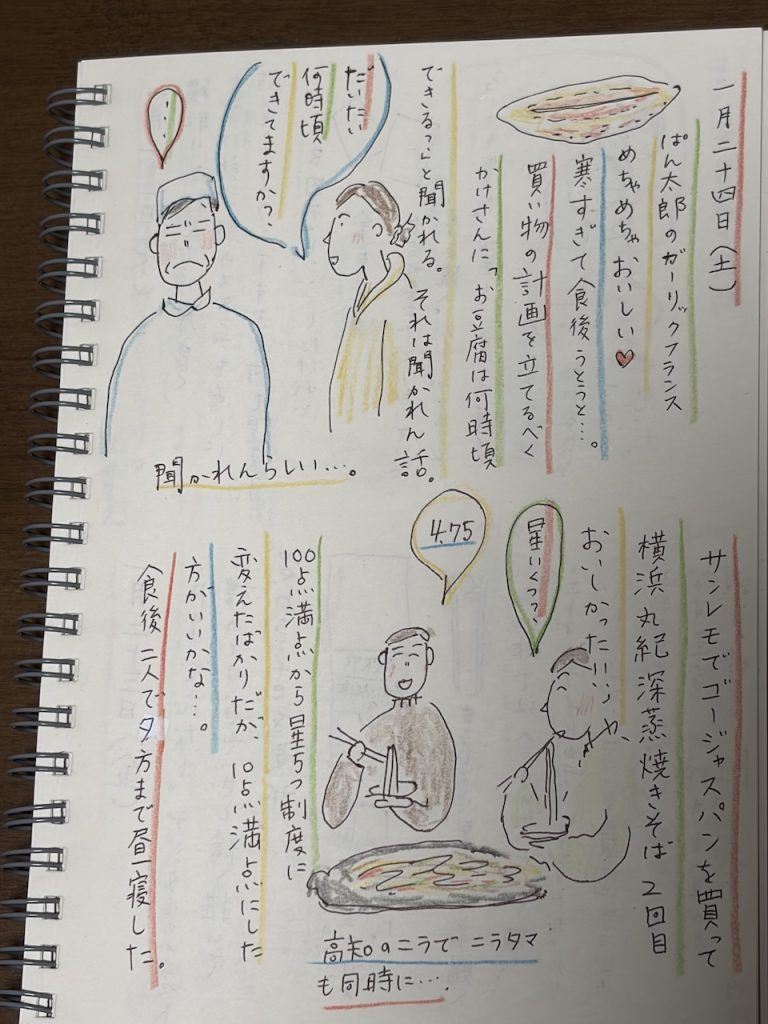 一月二十四日(土)
ぱん太郎のガーリックフランス
めちゃめちゃおいしい♥
寒すぎて食後うとうと…。
買い物の計画を立てるべく
かけさんに「お豆腐は何時頃
できるっ?」と聞かれる。それは聞かれん話。
だいたい
何時頃、
できてますか?
…
聞かれんらしい…。
サンレモでゴージャスパンを買って
横浜丸紀深蒸焼きそば2回目
おいしかったいいっ
星いくつ?
4.75
100点満点から星5つ制度に
変えたばかりだが、10点満点にした
方がいいかな…。
食後二人で夕方まで昼寝した。
高知のニラでニラタマ
も同時に….